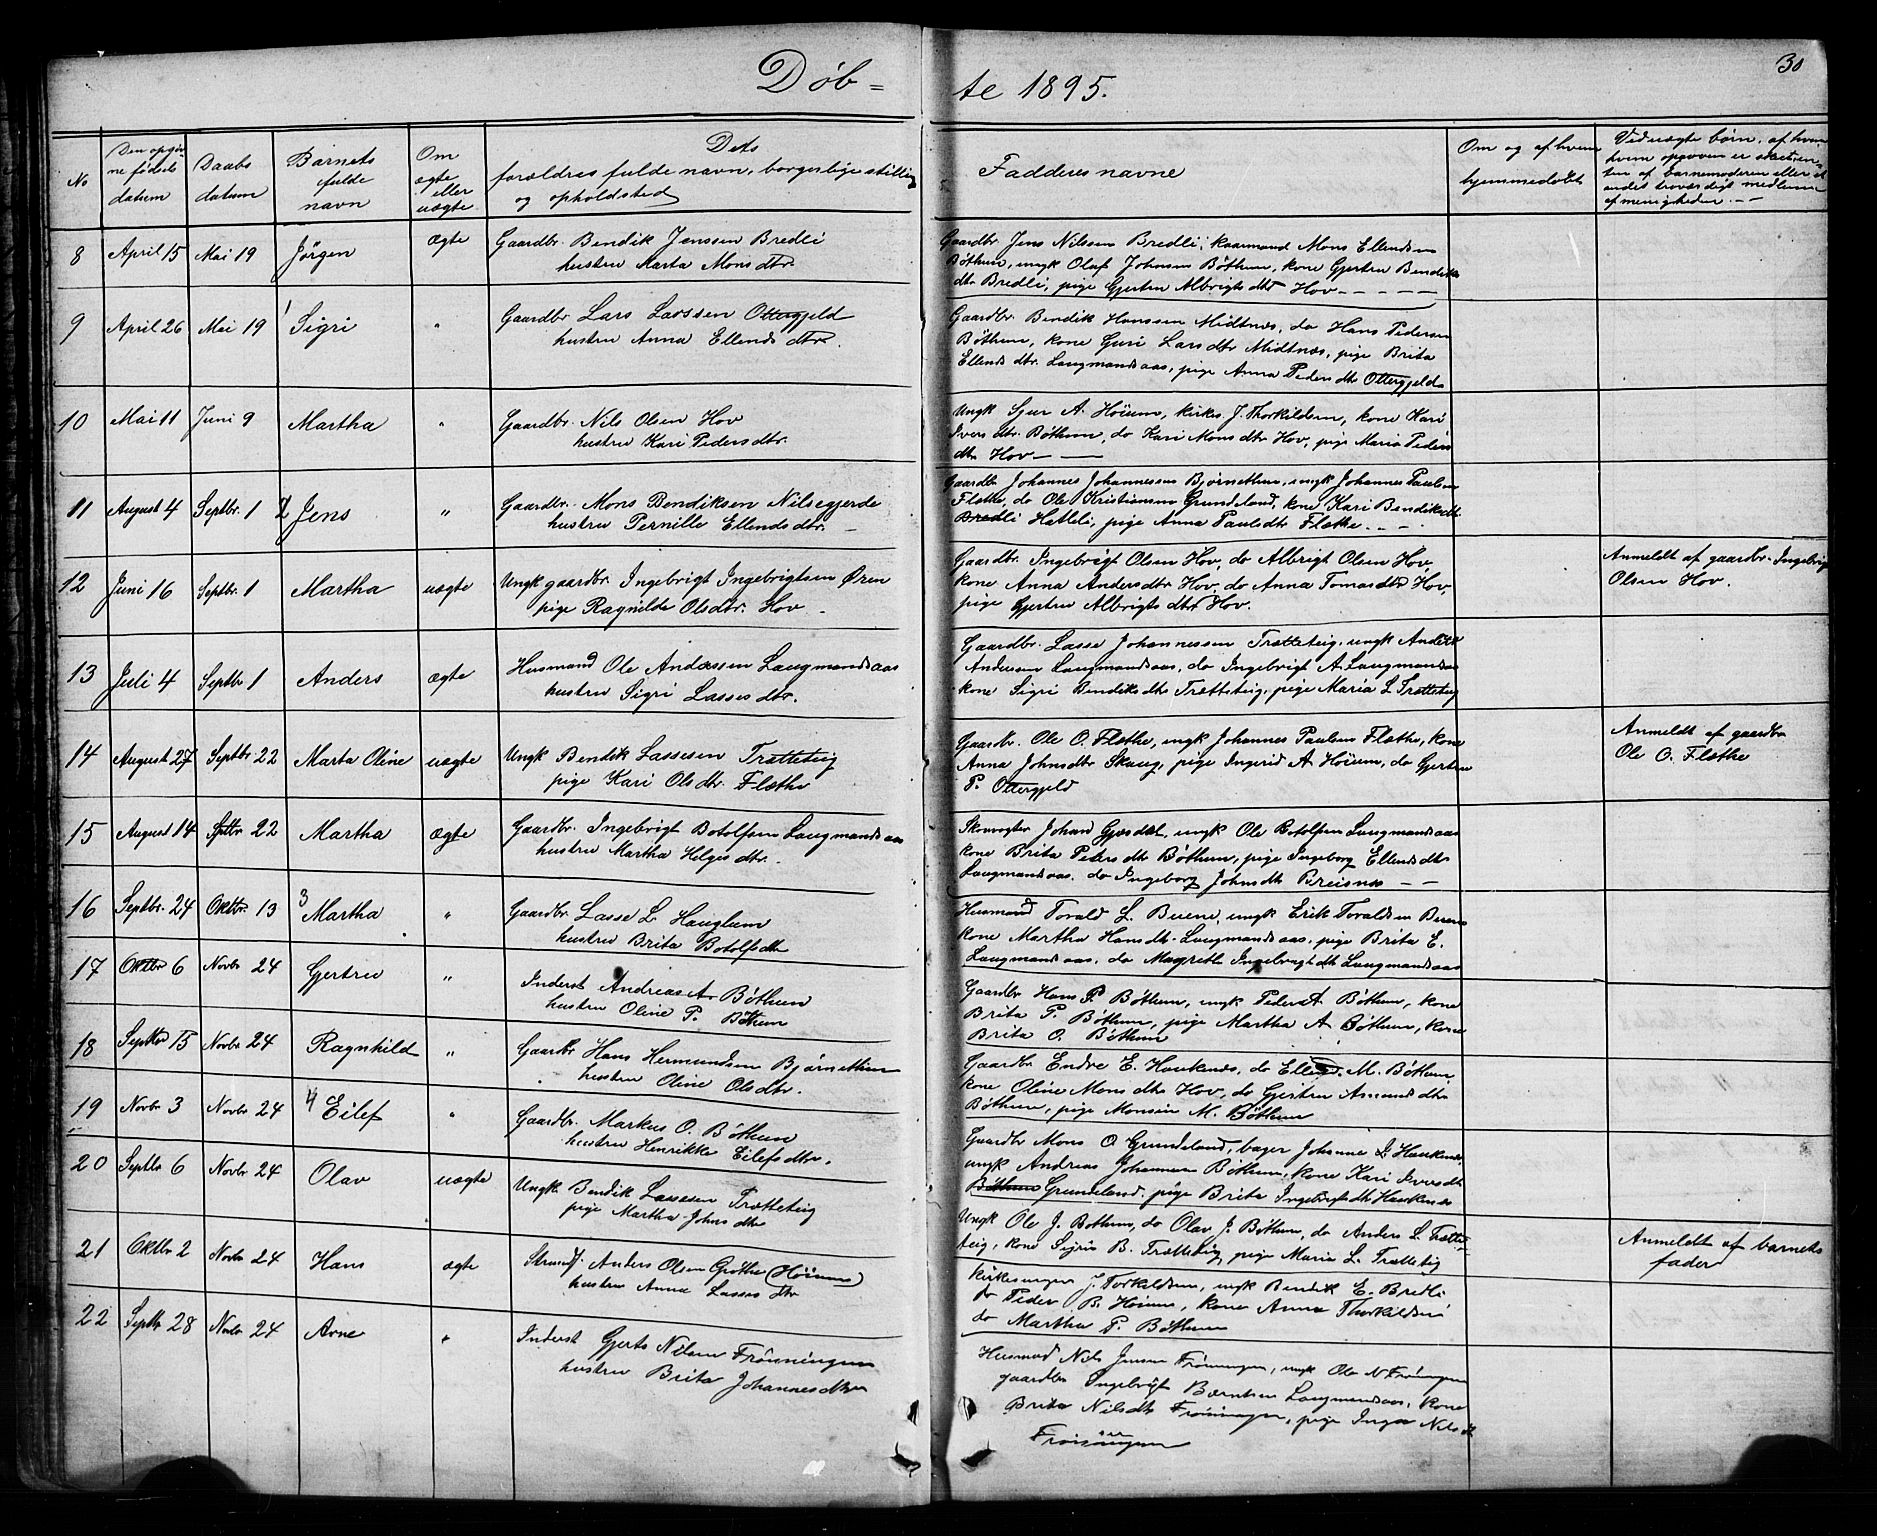 Døb-
te 1895.
30
No
Den opgiv
ne fødsels
datum
Daabs
datum
Barnets
fulde
navn
Om
ægte
eller
uægte
Dets
forældres fulde navn, borgerlige stilling
og opholdsted
Faddernes navne
Om og af hvem
hjemmedøbt
Ved uægte børn, af hvem
8 April 15 Mai 19 Jørgen ægte Gaardbr. Bendik Jenssen Bredli
hustru Marta Mons dtr.
Gaardbr. Jens Nilssen Bredli, kaarmand Mons Ellendsen
Bøthun, ungk Olaf Johnsen Bøthun, kone Gjertru Bendiks
dtr Bredli, pige Gjertru Albrigts dtr Hov
9 April 26 Mai 19 1 Sigri " Gaardbr Lars Larssen Ottergjeld
hustru Anna Ellends dtr.
Gaardbr. Bendik Hanssen Midtnæs, do Hans Pedersen
Bøthun, kone Guri Lars dtr Midtnæs, pige Brita
Ellends dtr. Laugmandsaas, pige Anna Peders dtr Ottergjeld
10 Mai 11 Juni 9 Martha " Gaardbr. Nils Olsen Hov
hustru Kari Peders dtr.
Ungk Sjur A. Høium, kirkes. J. Thorkildsen, kone Kari
Ivers dtr. Bøthun, do Kari Mons dtr Hov, pige Maria Peders
dtr Hov
11 August 4 Septbr. 1 2 Jens " Gaardbr. Mons Bendiksen Nilsegjerde
hustru Pernille Ellends dtr.
Gaardbr Johannes Johannessen Bjørnethun, ungk Johannes Paulsen
Fløthe, do Ole Kristiansen Grundeland, kone Kari Bendiks dtr
Bredli Hatleli, pige Anna Pauls dtr Fløthe
12 Juni 16 Septbr. 1 Martha uægte Ungk gaardbr Ingebrigt Ingebrigtsen Øren
pige Ragnilde Olsdtr. Hov
Gaardbr. Ingebrigt Olsen Hov, do Albrigt Olsen Hov,
kone Anna Andersdtr Hov, do Anna Tomasdtr Hov,
pige Gjertru Albrigts dtr Hov.
Anmeldt af gaardbr. Ingebrigt
Olsen Hov.
13 Juli 4 Septbr 1 Anders ægte Husmand Ole Andersen Laugmandsaas
hustru Sigri Lasses dtr.
Gaardbr. Lasse Johannessen Trætteteig, ungk Anders
Andersen Laugmandsaas, do Ingebrigt A. Laugmandsaas
kone Sigri Bendiks dtr Trætteteig, pige Maria L. Trætteteig
14 August 27 Septbr. 22 Marta Oline uægte Ungk Bendik Lassesen Trætteteig
pige Kari Ols dtr. Fløthe
Gaardbr. Ole O. Fløthe, ungk Johannes Paulsen Fløthe, kone
Anna Johnsdtr Skaug, pige Ingerid A. Høium, do Gjertru
P. Ottergjeld
Anmeldt af gaardbr
Ole O. Fløthe
15 August 14 Sptbr. 22 Martha ægte Gaardbr. Ingebrigt Botolfsen Laugmandsaas
hustru Martha Helges dtr.
Skomager Johan Gjesdal, ungk Ole Botolfsen Laugmandsaas
kone Brita Peders dtr Bøthun, pige Ingeborg Ellends dtr
Laugmandsaas, do Ingeborg Johnsdtr Breisnes
16 Septbr. 24 Oktbr. 13 3 Martha " Gaardbr. Lasse L. Hauglum
hustru Brita Botolfsdtr
Husmand Torald L. Buene, ungk Erik Toraldsen Buene
kone Martha Hansdtr. Laugmandsaas, pige Brita E.
Laugmandsaas, do Magrethe Ingebrigtdtr Laugmandsaas
17 Oktbr 6 Novbr 24 Gjertru " Inderst Andreas A. Bøthun
hustru Oline P. Bøthun
Gaardbr Hans P. Bøthun, ungk Peder A. Bøthun, kone
Brita P. Bøthun, pige Martha A. Bøthun, kone
Brita O. Bøthun
18 Septbr 15 Novbr 24 Ragnhild " Gaardbr Hans Hermundsen Bjørnethun
hustru Oline Olsdtr.
Gaardbr Endre E. Haukenæs, do Ellend M. Bøthun
kone Oline Mons dtr Hov, do Gjertru Amunds dtr
Bøthun, pige Monsine M. Bøthun
19 Novbr 3 Novbr 24 4 Eilef " Gaardbr. Markus O. Bøthun
hustru Henrikke Eilefsdtr.
Gaardbr Mons O. Grundeland, bager Johanne L. Haukenæs
ungk Andreas Johannesen Bøthun, kone Kari Iversdtr
Bøthun Grundeland, pige Brita Ingebrigtsdtr Haukenæs
20 Septbr 6 Novbr 24 Olav uægte Ungk. Bendik Lassesen Trætteteig
pige Martha Johns dtr
Ungk Ole J. Bøthun, do Olav J. Bøthun, do Anders L. Trætte-
teig, kone Sigris B. Trætteteig, pige Maria L. Trætteteig
Anmeldt af barnets
fader
21 Oktbr 2 Novbr 24 Hans ægte Strands. Anders Olsen Grøthe (Høium)
hustru Anna Lasses dtr
Kirkesanger J. Torkildsen, ungk Bendik E. Bredli
do Peder B. Høium, kone Anna Thorkildsen
do Martha P. Bøthun
22 Septbr 28 Novbr 24 Arne " Inderst Gjerts Nilsen Frønningen
hustru Brita Johannesdtr
Husmand Nils Jensen Frønningen, ungk Ole N. Frønningen
gaardbr Ingebrigt Berntsen Laugmandsaas, kone
Brita Nilsdtr Frønningen, pige Inga Nilsdtr
Frønningen